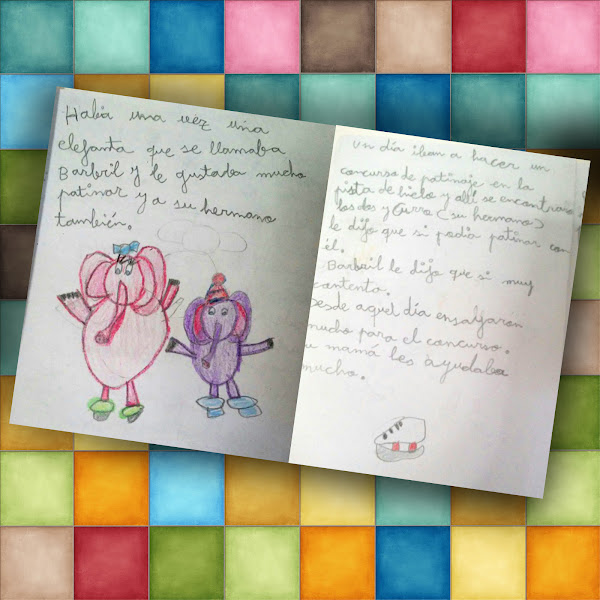 Había una vez una
elefanta que se llamaba
Barbril y le gustaba mucho
patinar y a su hermano
también.
Un día iban a hacer un
concurso de patinaje en la
pista de hielo y allí se encontraron
los dos y Curro (su hermano)
le dijo que si podia patinar con
él.
Barbril le dijo que si muy
contenta.
Desde aquel día
mucho para el concurso.
u mamá les ayudaba
mucho.